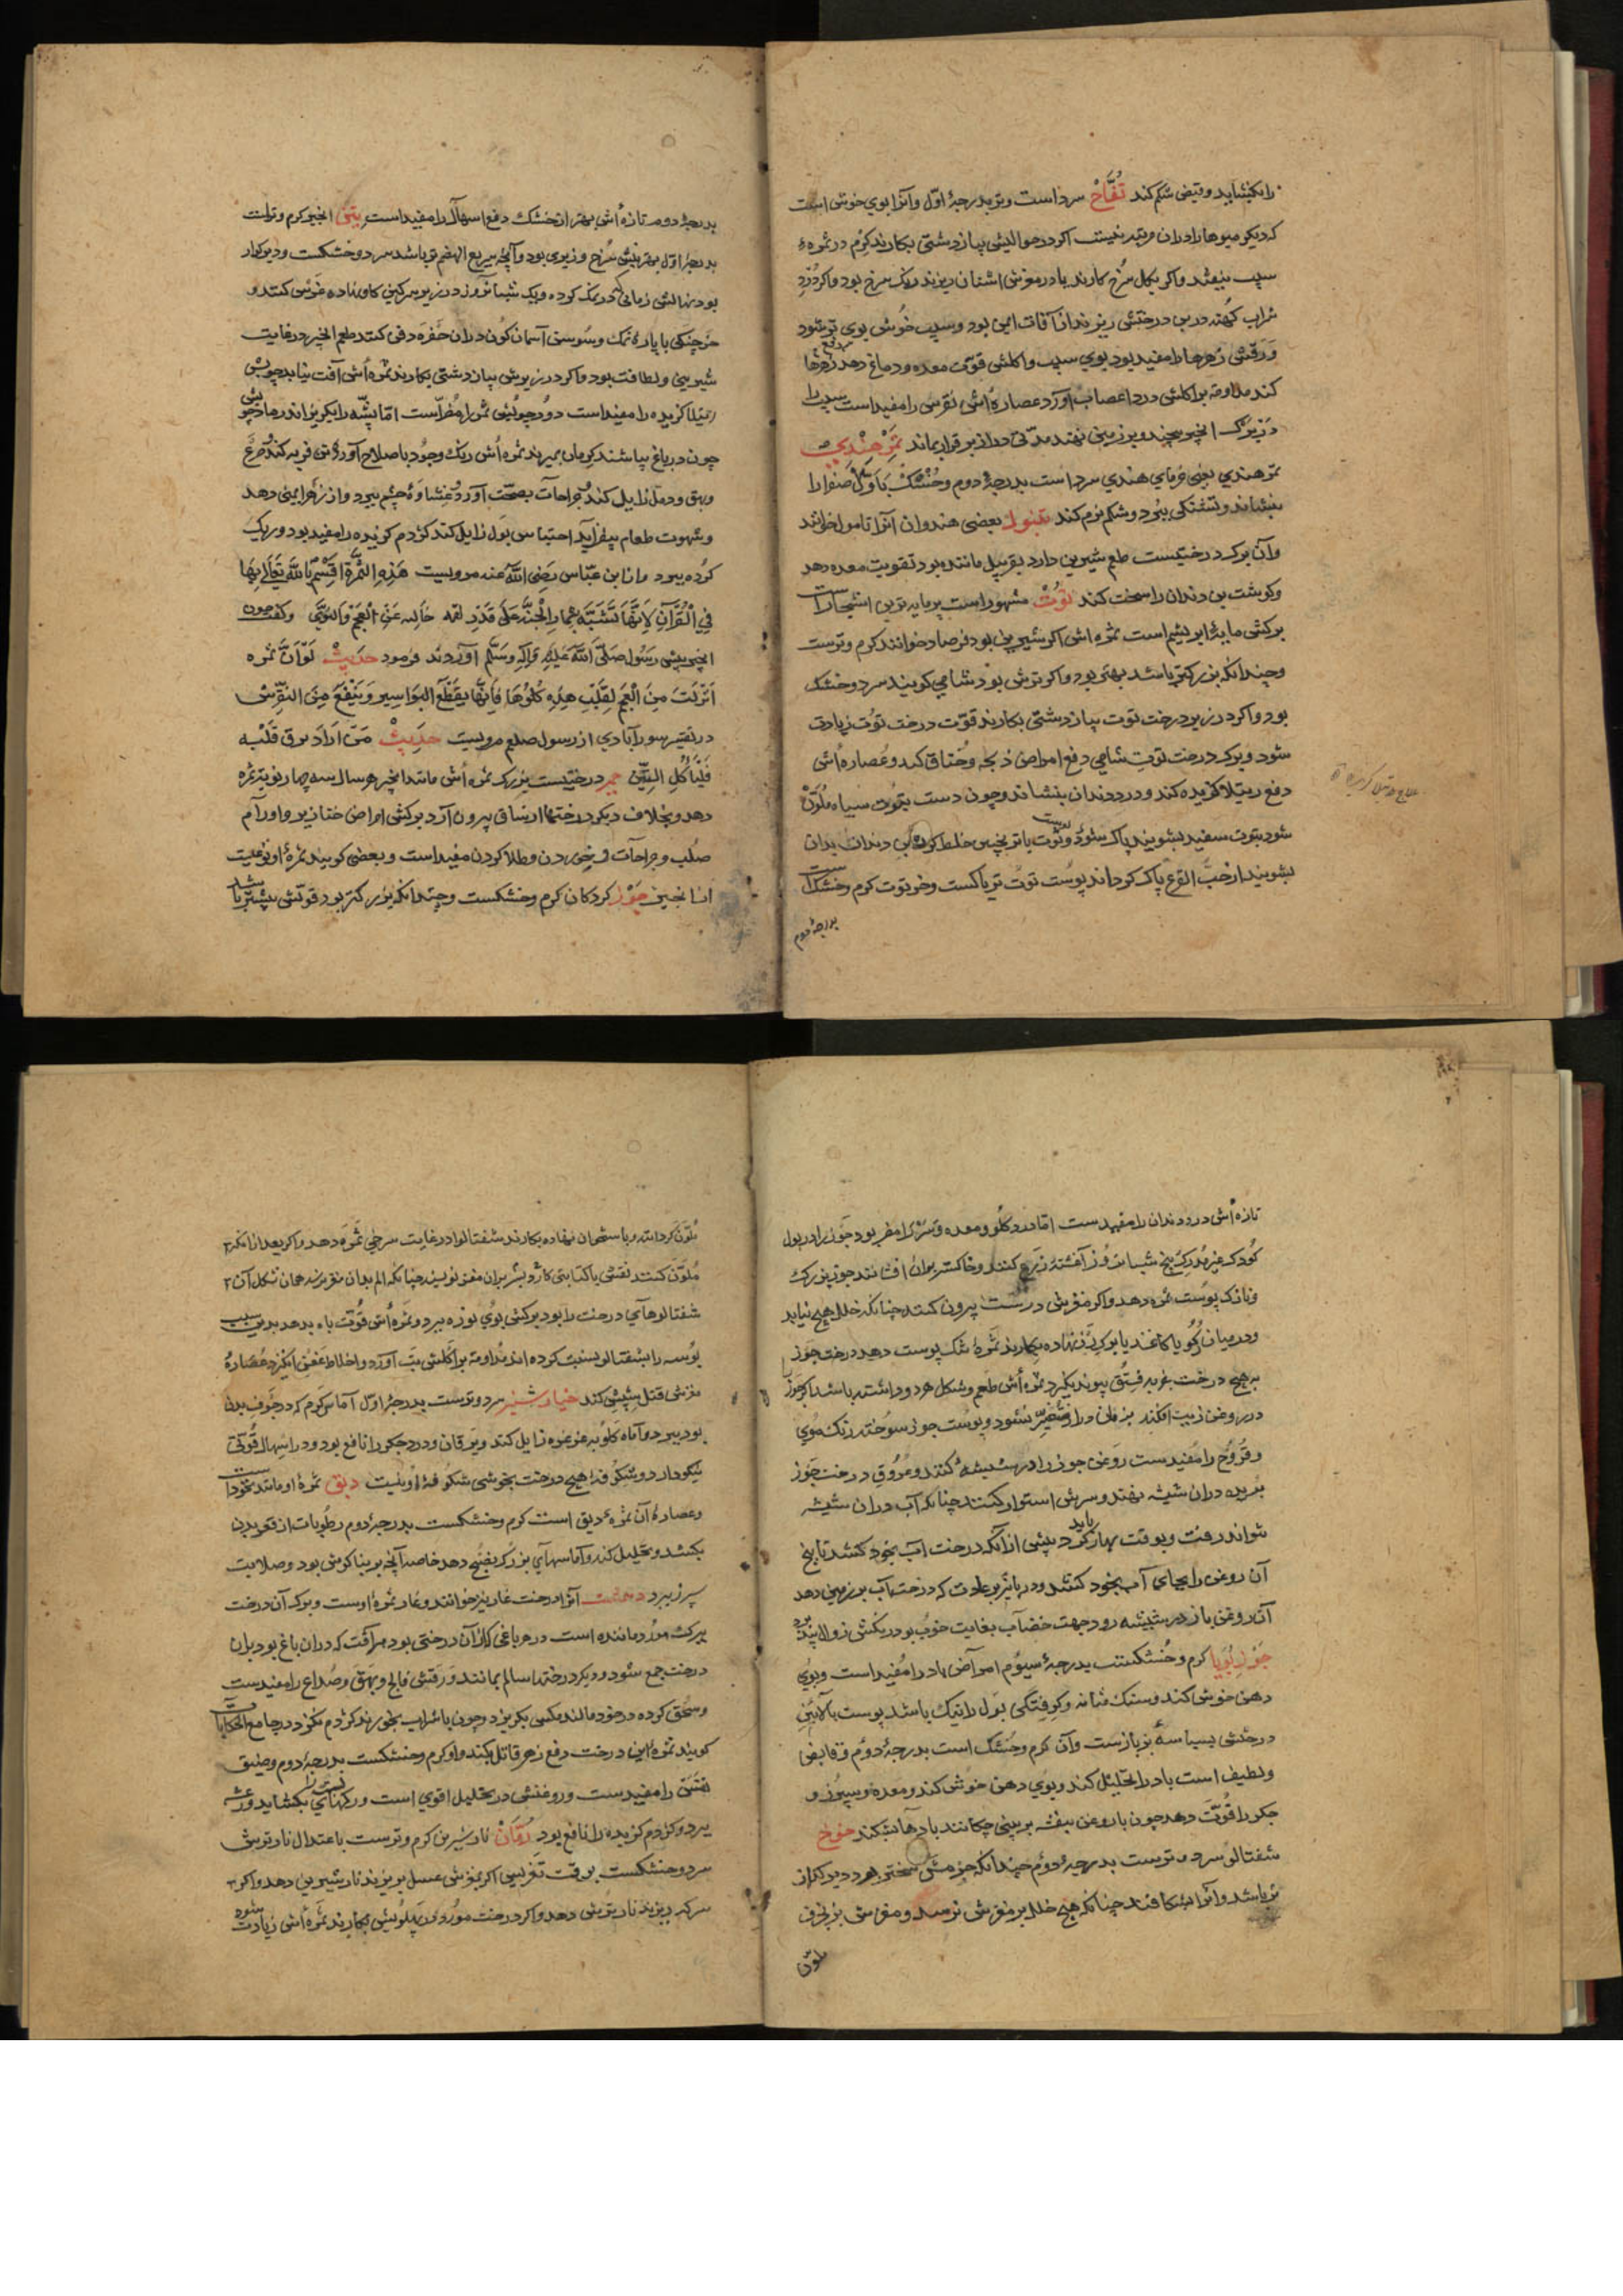 را بکشاید و قبض شکم کند تُفَّاحْ سرد است و تر بدرجهٔ اوّل و آنرا بوی خوش است
که دیکر میوها را دران مرتبه نیست اکر در حوالیش پیاز دشتی بکارند کِرْم در ثمرهٔ
سیب نیفتد واکر بکل سُرخ کارند یا در مغزش اشنان ریزند رنک سرخ بود واکر دُردِ
شراب کُهنه در بن درختش ریزند از آفات ایمن بود و سیب خُوش بوی تر شود
وَرَقش زهرها را مفید بود بوی سیب و اکلش قوّت معده و دماغ دهد دفع زهرها
کند مداومت بر اکلش درد اعصاب آورد عصارهٔ اُش نقرس را مفید است سیب را
در برک انجیر پیچند و بر زمین نهند مدّتی دراز بر قرار بماند تَمْرِ هِنْدِي
تمر هندی یعنی خرمای هندی سرد است بدرجهٔ دوم و خُشْک بَاَوّل صَفْرا را
بنشاند و تشنکی ببرد و شکم نرم کند تنبول بعضی هندوان آنرا تامول خوانند
وآن برک درختیست طعم شیرین دارد بقرنپل مانند بود تقویت معده دهد
وکوشت بن دندان را سخت کند تُوتْ مشهور است پر مایه ترین اشجار است
برکش مایهٔ ابریشم است ثمره اش اکر شیرین بود فرصاد خوانند کرم و ترست
و چندانکه بزرکتر باشد بهتر بود و اکر ترش بود شامی کویند سرد و خشک
بود و اکر در زیر درخت توت پیاز دشتی بکارند قوّت درخت توُت زیادت
شود و برک درخت توتِ شامی دفع امراض ذبحه و خُناق کند و عُصاره اُش
دفع رتیلا کزیده کند و درد دندان بنشاند و چون دست بتوت سیاه مُلَوَّنْ
شود بتوت سفید بشویند پاک شود و پوست توت با ترنجبین خلط کرده بن دندان بدان
بشویند از حبّ القرع پاک کرداند پوست توت تریاکست و خر توت کرم و خشک است
بدرجهٔ دوم
علاج رتیلا کزیده
بدرجهٔ دوم تازه اُش بهتر از خشک دفع اسهال را مفید است تین انجیر کرم و ترست
بدرجهٔ اوّل بهترینش سُرخ وزیری بود و آنچه سریع الهضم تر باشد سرد و خشکست و دیر کوار
بود نهالش زمانی در نمک کرده و یک شبانروز در زیر سرکین کاو نهاده غرس کنند و
خرچنکی با پارهٔ نمک و سُوسن آسمان کون دران حُفره دفن کنند طعم انجیر در غایت
شیرینی و لطافت بود و اکر در زیرش پیاز دشتی بکارند ثمره اُش آفت نیابد چوبش
رتیلا کزیده را مفید است دودِ چوبش
چون در باغ بپاشند کرمان بمیرند ثمره اُش رنک وجود با صلاح آورد تن فربه کند صرع
وبهق و دمل زایل کند جراحات بصحّت آورد غشاوهٔ چشم ببرد و از زهر ایمنی دهد
وشهوت طعام بیفزاید احتباس بَول زایل کند کژدم کزیده را مفید بود و ریک
کرده ببرد و از ابن عبّاس رَضِیَ اللّٰهُ عنه مرویست هَذِهِ الثَّمَرَة اَقْسَمَ اللّٰهُ تَعَالٰی بِهَا
فِي الْقُرْآنِ لِاَنَّهَا تَشَبَّهَ بِثِمَارِ الْجَنَّةِ عَلَی قَدْرِ لقمه خالیه عَنِ الْعَجَمْ وَالنَّوَی وکفت چون
انجیر پیش رسول صَلَّی اللّٰهُ عَلَیْهِ وَآلِهِ وَسَلَّم آوردند فرمود حَدِیثْ لَوْ اَنَّ ثمره
اُنْزِلَتْ مِنَ الْجَنَّةِ هِذِهِ کُلُوهَا فَاِنَّهَا یَقْطَعُ البَوَاسِیر وَیَنْفَعُ مِنَ النِّقْرِسْ
در تفسیر سورآبادی از رسول صلعم مرویست حَدِیثْ مَنْ اَرَادَ یرق قَلْبُه
فَلْیَأْکُلِ التِّیْنَ جمیز درختیست بزرک ثمره اُش مانند انجیر هر سال سه چهار نوبت ثمره
دهد و بخلاف دیکر درختها از ساق بیرون آرد برکش امراض خنازیر و اورام
صُلب و جراحات خوردن و طلا کردن مفید است و بعضی کویند ثمرهٔ او نوعیست
از انجیر جَوْز کردکان کرم و خشکست و چندانکه بزرکتر بود قوتش بیشتر باشد
تازه اُش درد دندان را مفیدست امّا درد کلُو و معده و سَرْ را مضر بود جَوْز را در بول
کُودک غیر مُدرِک پنج شبانروز آغشته زرع کنند و خاکستر بران افشانند جوز بزرک
ونازک پوست ثمره دهد و اکر مغزش درست بیرون کنند چنانکه خلل هیچ نیابد
و در میان کاغد یا برک رَز نهاده بکارند ثمرهٔ تنک پوست دهد درخت جَوز
به هیچ درخت بغیر فستُق پیوند نکیرد ثمره اُش طعم و شکل هر دو داشته باشد اکر جوز
در روغن زیت افکنند بزمانی دراز متغیّر نشود و پوست جوز سوخته رنک مُوی
وقُرُوح را مُفیدست رَوغن جوز را در شیشهٔ کنند و عُروق درخت جَوز
بُریده دران شیشه نهند و سرش استوار کنند چنانکه آب دران شیشه
نتواند رفت و بوقت بهار باید کرد پیش ازآنکه درخت آب بخود کشد تا بیخ
آن روغن را بجای آب بخود کشد و در پائیز بر عادت که درخت آب بر زمین دهد
آن روغن باز در شیشه رود جهت خضاب بغایت خوُب بود
جَوْزِ بُوَیا کرم و خُشکست بدرجهٔ سیوُم امراض باد را مُفید است و بوُی
دهن خوش کند و سنک مثانه و کرفتکی بَول را نیک باشد پوست بالائین
درختش بسباسهٔ بربازست وآن کرم و خُشک است بدرجهٔ دوُم و قابض
ولطیف است باد را تحلیل کند و بوُی دهن خوُش کند و معده و سپرز و
جکر را قُوّت دهد چون با روغن بنفشه بر بینی چکانند بادها بشکند خوخ
شفتالوُ سرد و ترست بدرجهٔ دوُم چندانکه جرمش سختر بود دیر کزارتر
بُوَد باشد و آنرا بشکافند چنانکه هیچ خلل بر مغزش نرسد و مغزش بزنجرف
ملوّن
مُلَوّن کردانند و با ستخوان نهاده بکارند شفتالوُ در غایت سرخی ثَمَره دهد و اکر بعد ازانکه
مُلَوّن کنند نقشی یا کتابتی بران مغز نویسند چنانکه الم بدان مغز نرسد همان شکل آن
شفتالوهای درخت را بود برکش بوُی نوره ببرد و ثمره اُش قُوّت باه بدهد بدین سبب
بُوسه را بشفتالو نسبت کرده اند مُداومت بر اَکلش تبّ آورد و اخلاط عَفِن انکیزد عُصارهٔ
مغزش قتل شِپش کند خیارشنبر سرد و ترست بدرجهٔ اوّل آماس کرم که در جَوفِ بدن
بود ببرد و آماه کلُو بغرغره زایل کند و یرقان و درد جکر را نافع بود و در اسهال قُوّتی
نیکو دارد و شِکُوفهٔ هیچ درخت بخوشی شکُوفهٔ او نیست دبق ثمرهٔ او مانند نخود است
وعصارهٔ آن ثمرهٔ دبق است کرم و خشکست بدرجهٔ دوم رطُوبات از قعر بدن
بکشد و تحلیل کند و آماسهای بزرک را نضج دهد خاصه آنچه بر بناکوش بود و صلابت
سپرز ببرد دهمست آنرا درخت غار نیز خوانند و غار ثمرهٔ اوست و برک آن درخت
ببرک مُورد مانند است در هر باغی که از آن درختی بود هر آفت که دران باغ بود بران
درخت جمع شود و دیکر درختها سالم بمانند وَرَقش فالج و بهقَ و صُداع را مفیدست
وسَحق کرده در خود مالند مکس بکریزد و چون با شراب بخورند کژدم نکزد در جامع الحکایات
کویند ثمرهٔ این درخت دفع زهر قاتل بکند و او کرم و خشکست بدرجهٔ دوم وضیق
نفَسَ را مفیدست و روغنش در تحلیل اقوی است و رکهای بسته را بکشاید و رعشه
ببرد و کژدم کزیده را نافع بود رُمّانْ نار شیرین کرم و ترست باعتدال نار ترش
سرد و خشکست بوقت تَغریس اکر بمُوش عسل بریزند نار شیرین دهد و اکر
سرکه ریزند نار ترش دهد و اکر درخت مورد در پهلوش بکارند ثمره اُش زیادت شود